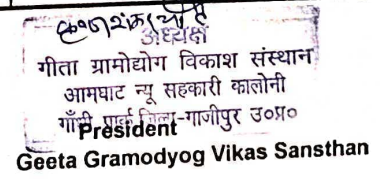 अध्यक्ष
गीता ग्रामोद्योग विकाश संस्थान
आमघाट न्यू सहकारी कालोनी
गाँधी पार्क जिला-गाजीपुर उ०प्र०
President
Geeta Gramodyog Vikas Sansthan